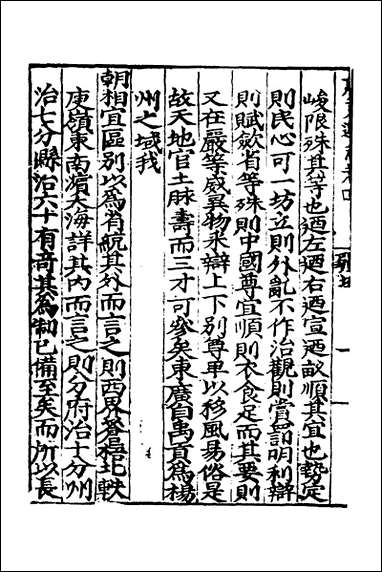 峻限殊其等也迺左迺右迺宣迺畝順其宜也勢定
則民心可一坊立則外亂不作治觀則賞罰明利辯
則賦歛省等殊則中國尊宜順則衣食足而其要則
又在嚴等威異物釆辯上下别尊卑以移風易俗是
故天地官土脉壽而三才可參矣東廣自禹貢為楊
州之域我
朝相宜區别以為省統其外而言之則西界蒼梧北軼
庾嶺東南濵大海詳其内而言之則分府治十分州
治七分縣治六十有竒其為制已備至矣而所以長